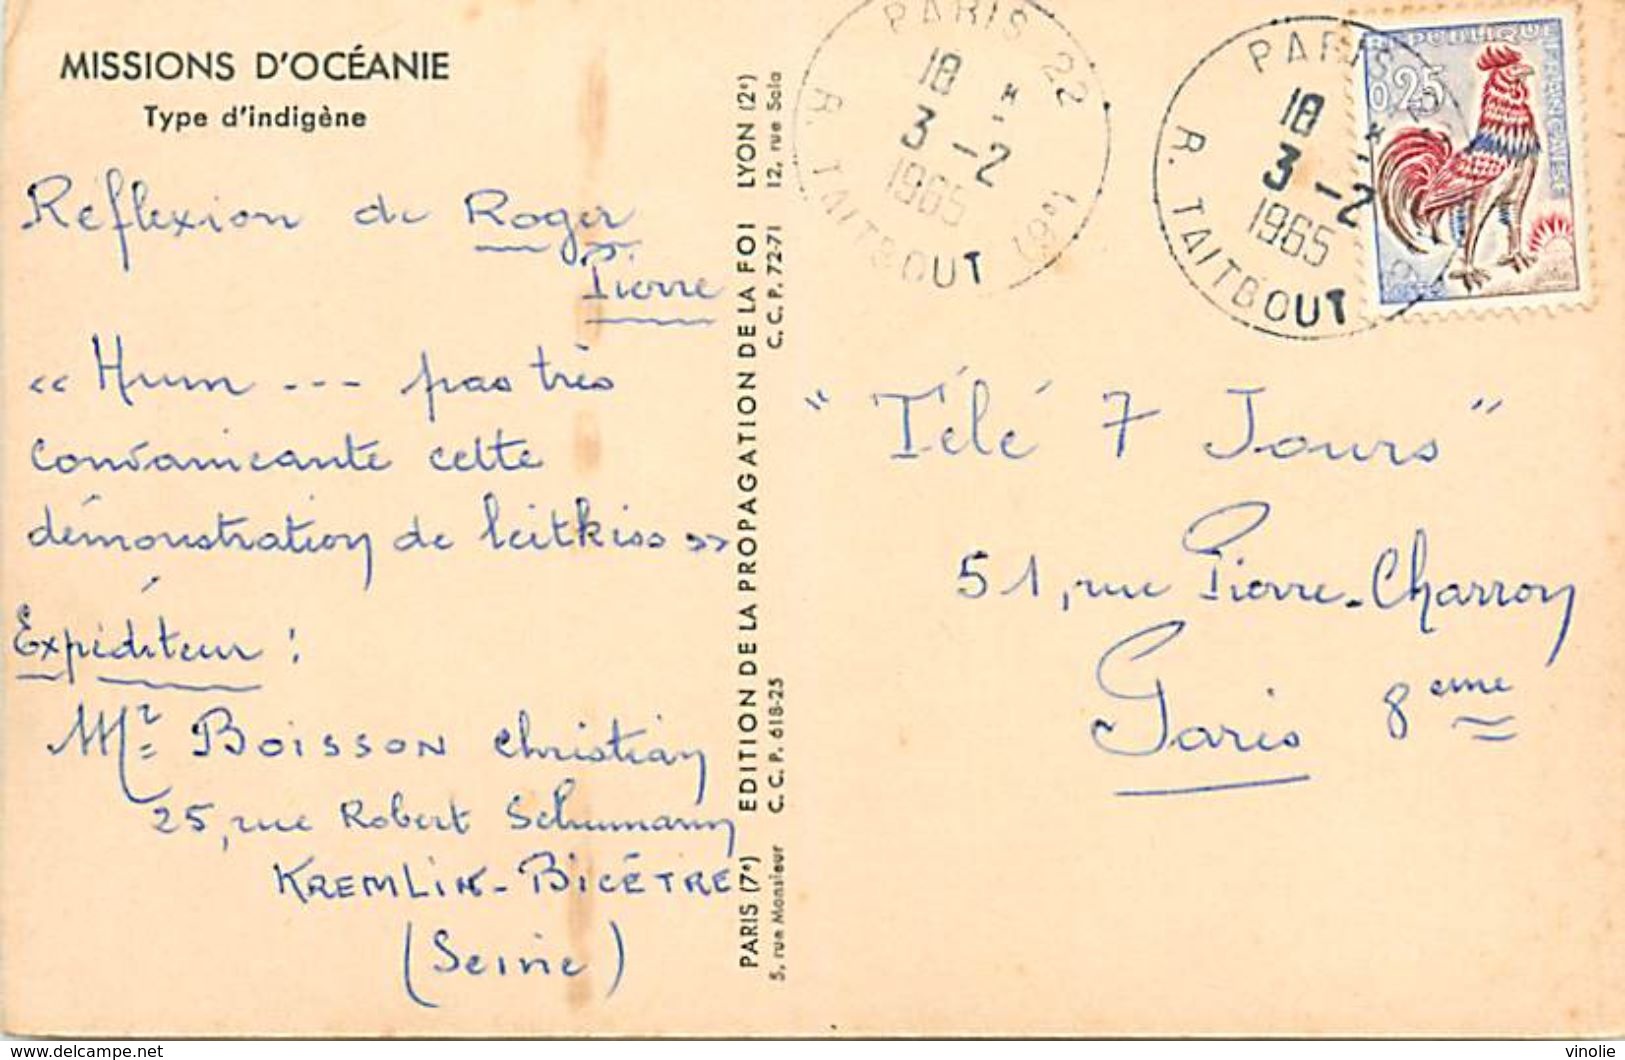 MISSIONS D'OCÉANIE
Type d'indigène
Réflexion de Roger
Pierre
« Hum --- pas très
convaincante cette
démonstration de leitkiss »
Expéditeur :
Mr BOISSON Christian
25, rue Robert Schumann
KREMLIN-BICÊTRE
(Seine)
PARIS (7e) EDITION DE LA PROPAGATION DE LA FOI LYON (2e)
5, rue Monsieur C. C. P. 618-25 C. C. P. 72-71 12, rue Sala
PARIS 22
18 *
3 -2
1965
R. TAITBOUT
PARIS
18 *
3 -2
1965
R. TAITBOUT
REPUBLIQUE FRANÇAISE
0,25
" Télé 7 Jours "
51, rue Pierre-Charron
Paris 8eme
delcampe.net
vinolie